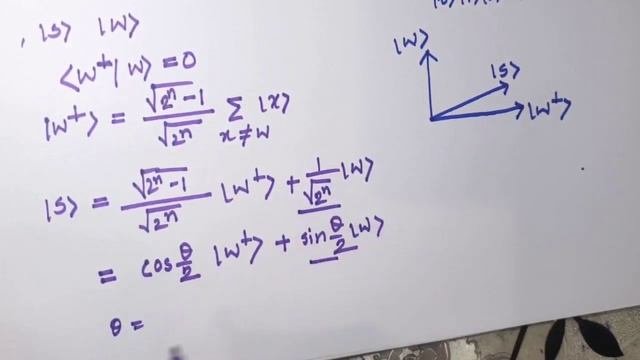 , |s⟩ |w⟩
⟨w⊥|w⟩ = 0
|w⊥⟩ = √(2ⁿ-1)/√(2ⁿ) Σ_{x≠w} |x⟩
|s⟩ = √(2ⁿ-1)/√(2ⁿ) |w⊥⟩ + 1/√(2ⁿ) |w⟩
= cos θ/2 |w⊥⟩ + sin θ/2 |w⟩
θ =
|w⟩
|s⟩
|w⊥⟩